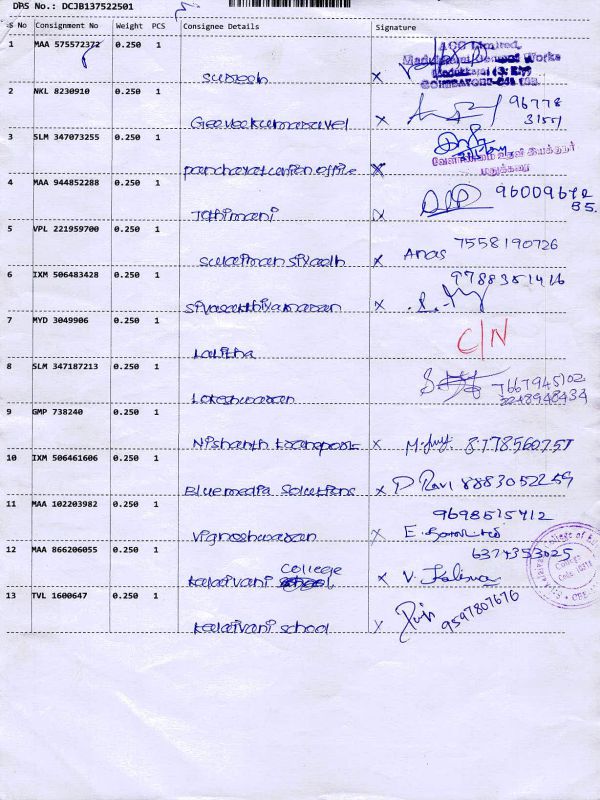 DRS No.: DCJB137522501
S No Consignment No Weight PCS Consignee Details Signature
1 MAA 575572372 0.250 1
ACC Limited,
Madukkarai Cement Works
Suresh x
COIMBATORE-641 105
2 NKL 8230910 0.250 1
96778
Geeveekumaravel x 3157
3 SLM 347073255 0.250 1
panchayat union office x
மதுக்கரை
4 MAA 944852288 0.250 1
9600967285.
Jothimani x
5 VPL 221959700 0.250 1
7558190726
Sulaiman Siyadh x Anas
6 IXM 506483428 0.250 1
9788351416
Sivasakthiyamaran x
7 MYD 3049906 0.250 1
C/N
Lalitha
8 SLM 347187213 0.250 1
7667945102
Lokeshwaran
9 GMP 738240 0.250 1
Nishanth x 8778560757
10 IXM 506461606 0.250 1
Bluemedia Solutions x P Ravi 8883052259
11 MAA 102203982 0.250 1
9698515412
Vigneshwaran x E.
12 MAA 866206055 0.250 1
6374353025
college
Kalaivani school x V.
13 TVL 1600647 0.250 1
9597807676
Kalaivani school x